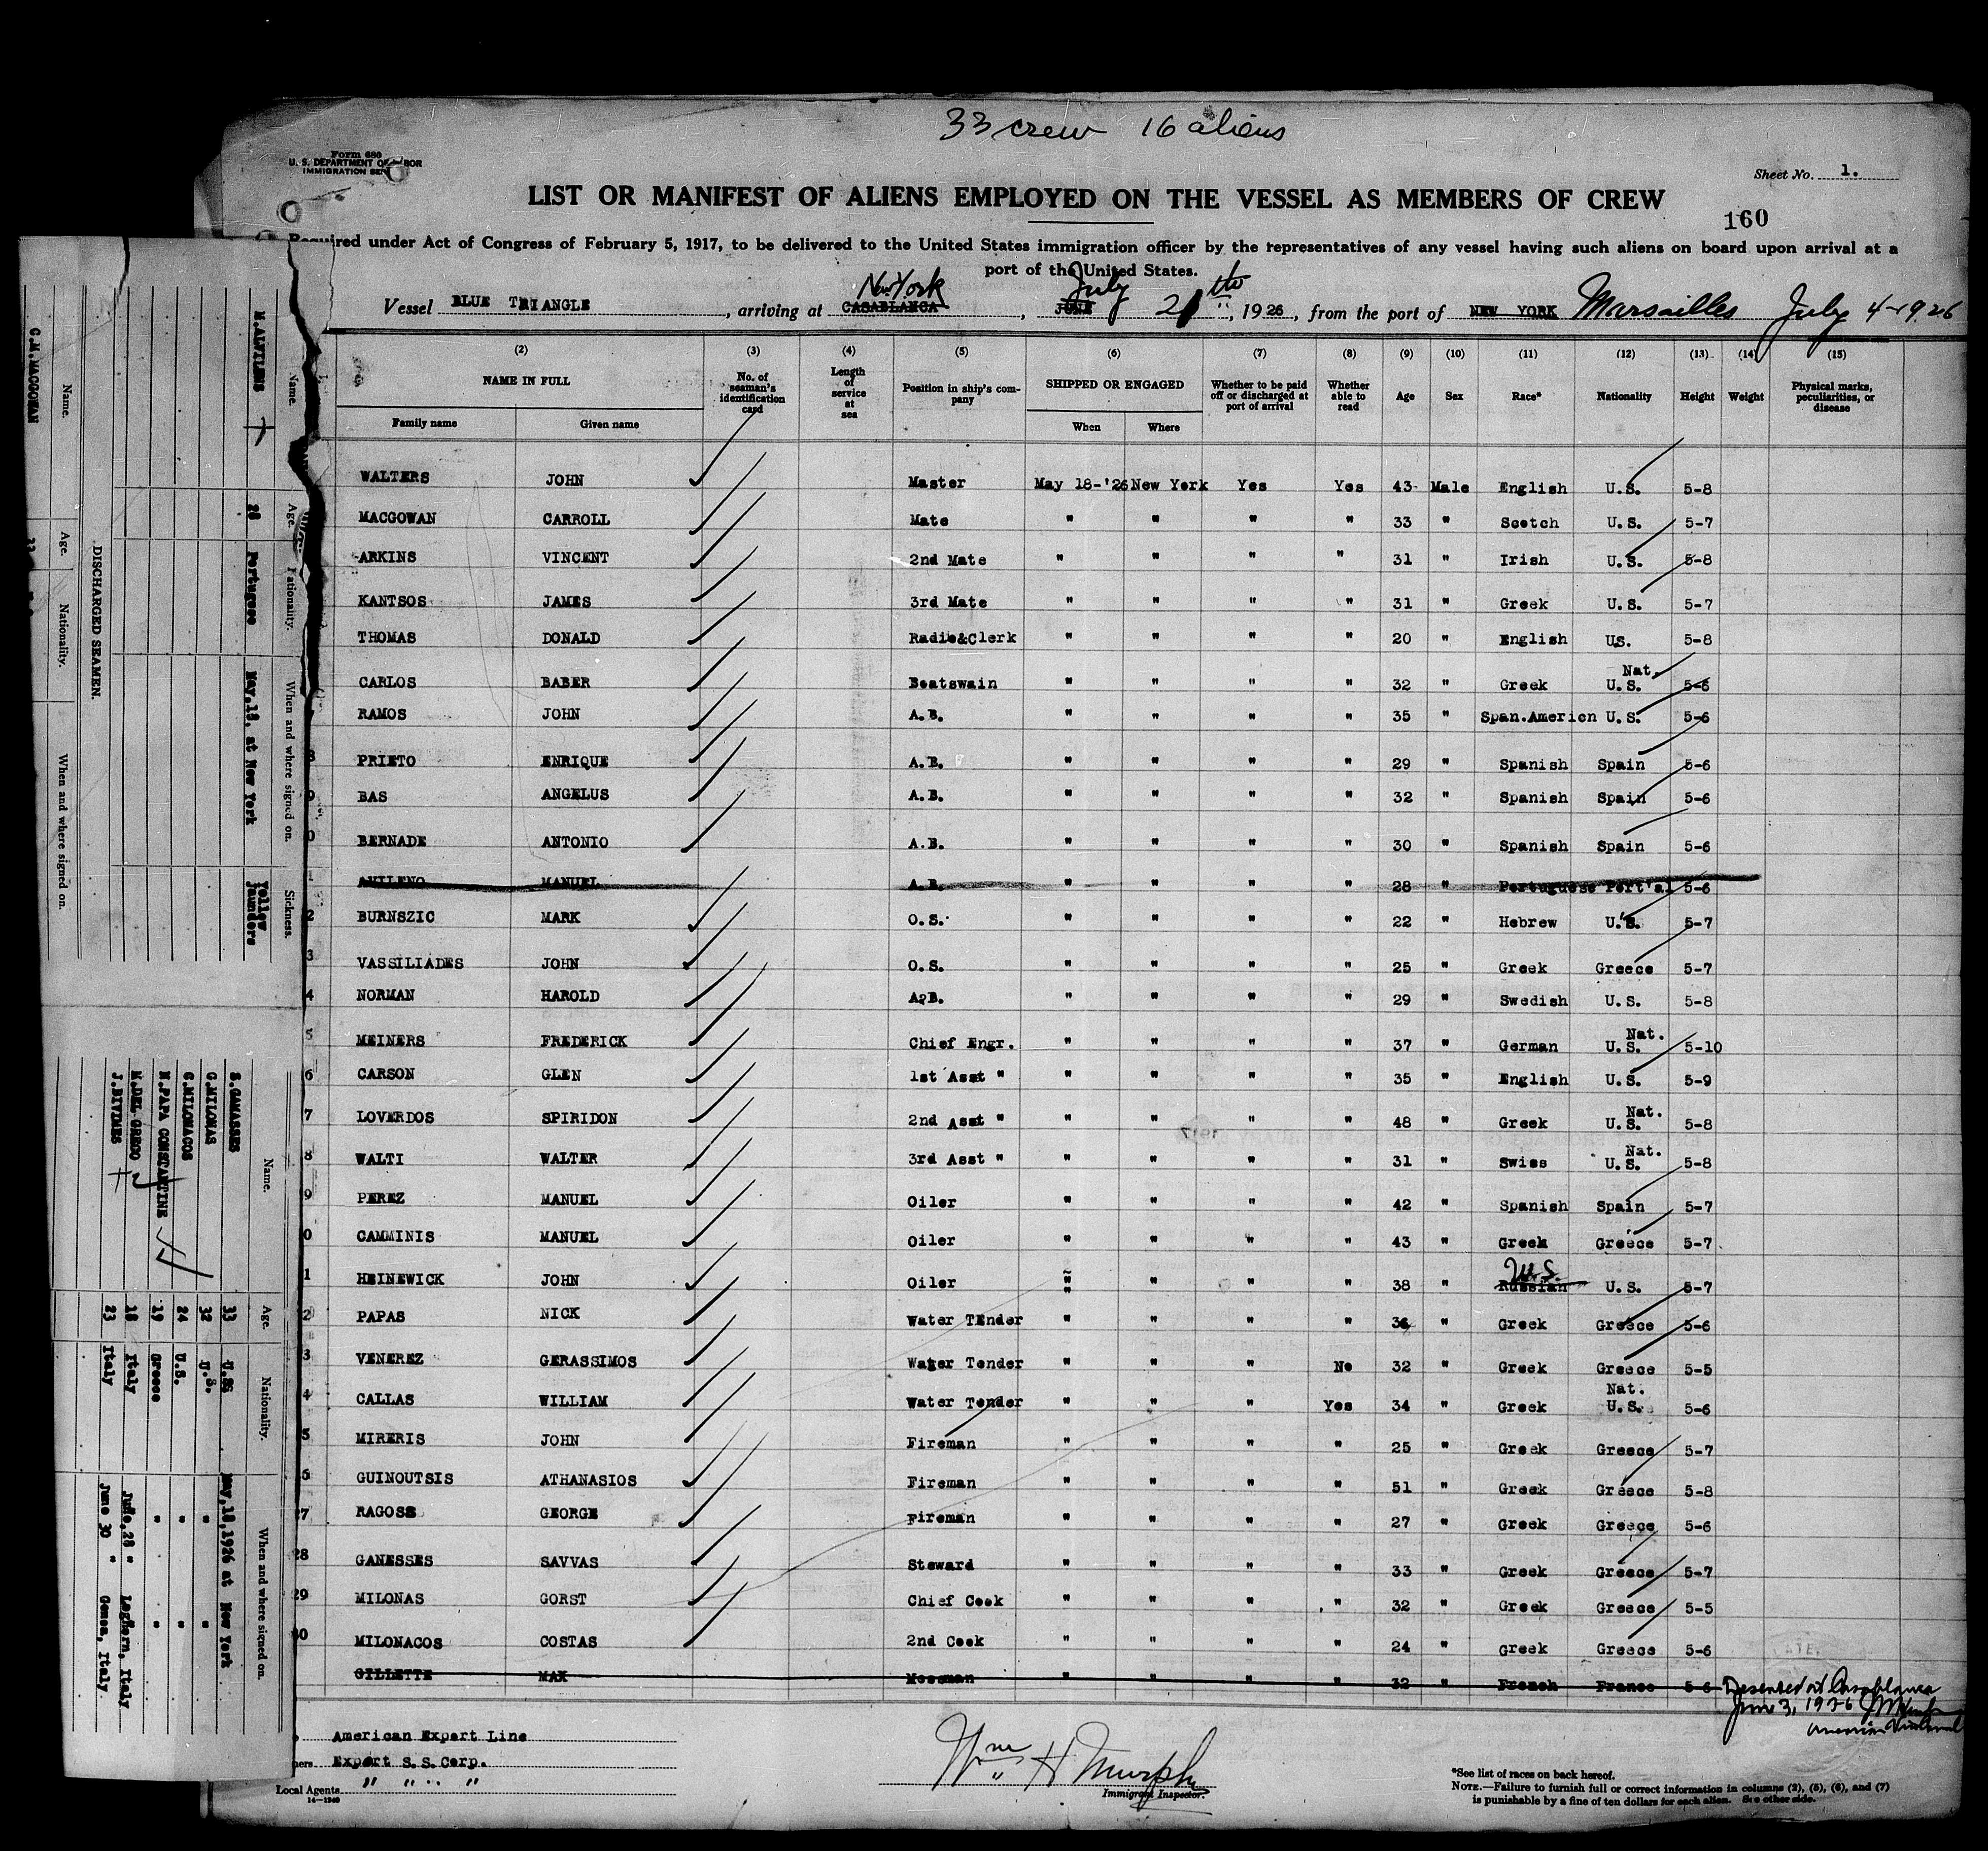 33 crew 16 aliens
Form 680
U. S. DEPARTMENT OF LABOR
IMMIGRATION SER
Sheet No. 1.
LIST OR MANIFEST OF ALIENS EMPLOYED ON THE VESSEL AS MEMBERS OF CREW
160
Required under Act of Congress of February 5, 1917, to be delivered to the United States immigration officer by the representatives of any vessel having such aliens on board upon arrival at a
port of the United States.
New York July th
Vessel BLUE TRIANGLE, arriving at CASABLANCA, JUNE 21, 1926, from the port of NEW YORK Marsailles July 4-1926
(2) (3) (4) (5) (6) (7) (8) (9) (10) (11) (12) (13) (14) (15)
NAME IN FULL Family name Given name No. of seaman's identification card Length of service at sea Position in ship's company SHIPPED OR ENGAGED When Where Whether to be paid off or discharged at port of arrival Whether able to read Age Sex Race* Nationality Height Weight Physical marks, peculiarities, or disease
WALTERS JOHN Master May 18-'26 New York Yes Yes 43 Male English U.S. 5-8
MACGOWAN CARROLL Mate " " " " 33 " Scotch U.S. 5-7
ARKINS VINCENT 2nd Mate " " " " 31 " Irish U.S. 5-8
KANTSOS JAMES 3rd Mate " " " " 31 " Greek U.S. 5-7
THOMAS DONALD Radio&Clerk " " " " 20 " English US. 5-8
CARLOS BABER Boatswain " " " " 32 " Greek Nat. U.S. 5-6
RAMOS JOHN A.B. " " " " 35 " Span.American U.S. 5-6
8 PRIETO ENRIQUE A.B. " " " " 29 " Spanish Spain 5-6
9 BAS ANGELUS A.B. " " " " 32 " Spanish Spain 5-6
0 BERNADE ANTONIO A.B. " " " " 30 " Spanish Spain 5-6
1 AVILENO MANUEL A.B. " " " " 28 " Portuguese Port'al 5-6
2 BURNSZIC MARK O.S. " " " " 22 " Hebrew U.S. 5-7
3 VASSILIADES JOHN O.S. " " " " 25 " Greek Greece 5-7
4 NORMAN HAROLD A.B. " " " " 29 " Swedish U.S. 5-8
5 MEINERS FREDERICK Chief Engr. " " " " 37 " German Nat. U.S. 5-10
6 CARSON GLEN 1st Asst " " " " " 35 " English U.S. 5-9
7 LOVERDOS SPIRIDON 2nd Asst " " " " " 48 " Greek Nat. U.S. 5-8
8 WALTI WALTER 3rd Asst " " " " " 31 " Swiss Nat. U.S. 5-8
9 PEREZ MANUEL Oiler " " " " 42 " Spanish Spain 5-7
0 CAMMINIS MANUEL Oiler " " " " 43 " Greek Greece 5-7
1 HEINEWICK JOHN Oiler " " " " 38 " Russian U.S. U.S. 5-7
2 PAPAS NICK Water TEnder " " " " 36 " Greek Greece 5-6
3 VENEREZ GERASSIMOS Water Tender " " " No 32 " Greek Greece 5-5
4 CALLAS WILLIAM Water Tender " " " Yes 34 " Greek Nat. U.S. 5-6
5 MIRERIS JOHN Fireman " " " " 25 " Greek Greece 5-7
6 GUINOUTSIS ATHANASIOS Fireman " " " " 51 " Greek Greece 5-8
27 RAGOSS GEORGE Fireman " " " " 27 " Greek Greece 5-6
28 GANESSES SAVVAS Steward " " " " 33 " Greek Greece 5-7
29 MILONAS GORST Chief Cook " " " " 32 " Greek Greece 5-5
30 MILONACOS COSTAS 2nd Cook " " " " 24 " Greek Greece 5-6
GILLETTE MAX Messman " " " " 32 " French France 5-6 Deserted at Casablanca
June 3, 1926
American
American Export Line
Export S.S.Corp.
Local Agents " " " "
14-1240
Wm H Murphy
Immigrant Inspector.
*See list of races on back hereof.
NOTE.—Failure to furnish full or correct information in columns (2), (5), (6), and (7)
is punishable by a fine of ten dollars for each alien. See other side.
Name. Age. Nationality. When and where signed on. Sickness.
M.ALVILENS 28 Portugese May,18, at New York Yellow Jaunders
DISCHARGED SEAMEN.
Name. Age. Nationality. When and where signed on.
C.M.MACGOWAN
Name. Age. Nationality. When and where signed on.
S.GANASSES 33 U.S. May,18,1926 at New York
G.MILONAS 32 U.S. " "
C.MILONACOS 24 U.S. " "
N.PAPA CONSTANTINE 19 Greece " "
M.DEL GRECO 18 Italy June,28 " Leghorn, Italy
J.BIVIMES 23 Italy June 30 " Genoa, Italy